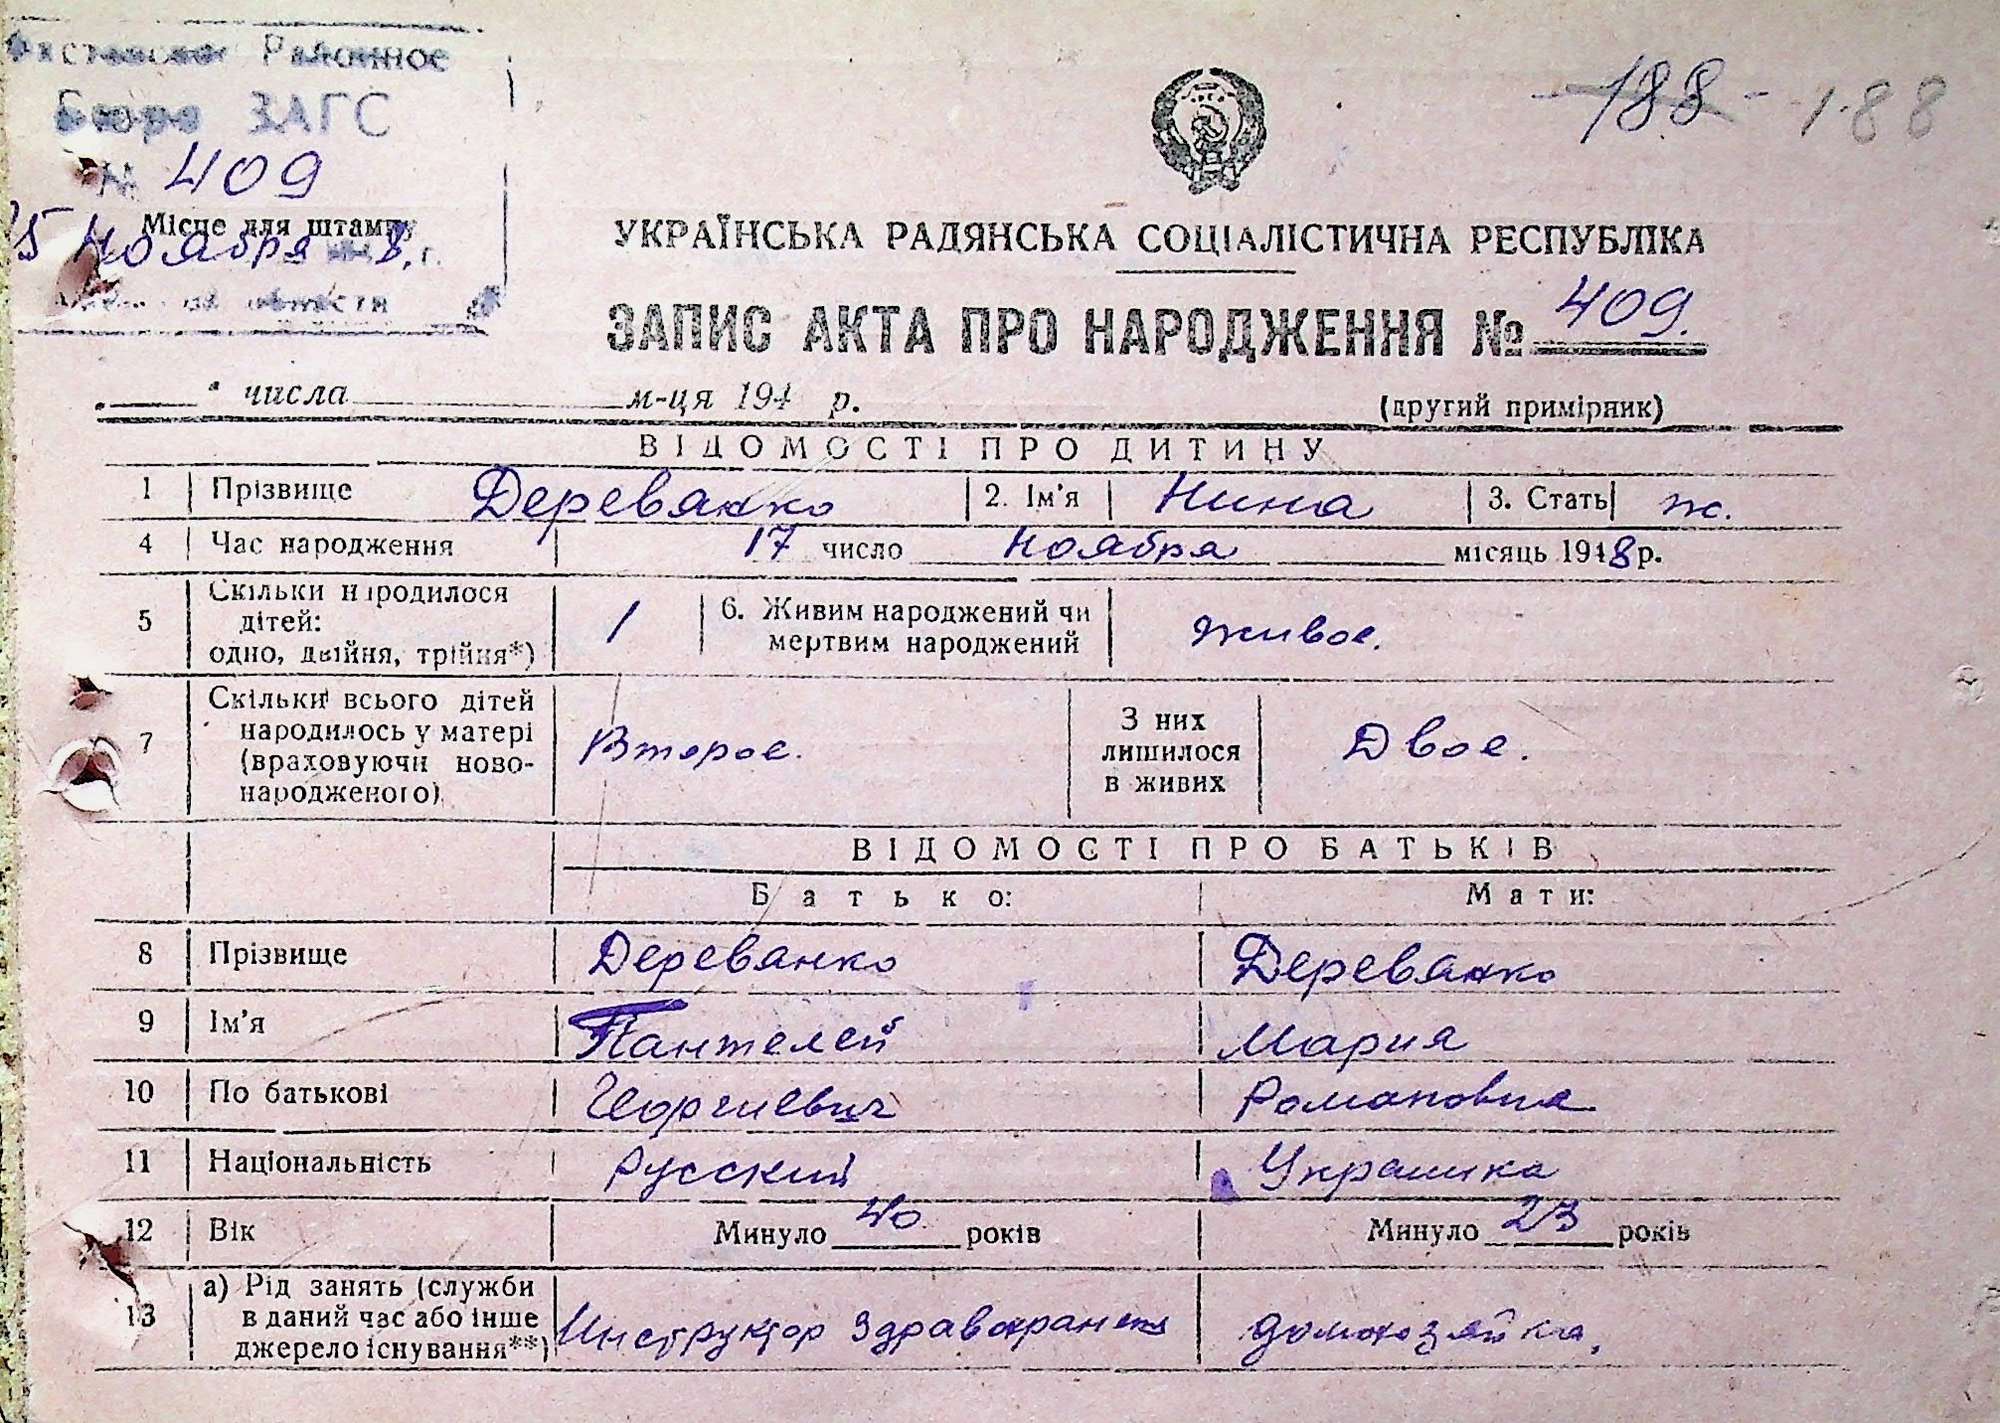 Районное
Бюро ЗАГС
№ 409
Місце для штампу
Ноября 8, г.
области
188 - 188
УКРАЇНСЬКА РАДЯНСЬКА СОЦІАЛІСТИЧНА РЕСПУБЛІКА
ЗАПИС АКТА ПРО НАРОДЖЕННЯ № 409.
" числа м-ця 194 р.
(другий примірник)
ВІДОМОСТІ ПРО ДИТИНУ
1 Прізвище Деревянко 2. Ім'я Нина 3. Стать ж.
4 Час народження 17 число Ноября місяць 1948 р.
5 Скільки народилося дітей: одно, двійня, трійня*) 1 6. Живим народжений чи мертвим народжений живое.
7 Скільки всього дітей народилось у матері (враховуючи новонародженого) Второе. З них лишилося в живих Двое.
ВІДОМОСТІ ПРО БАТЬКІВ
Батько: Мати:
8 Прізвище Деревянко Деревянко
9 Ім'я Пантелей Мария
10 По батькові Георгиевич Романовна
11 Національність Русский Украинка
12 Вік Минуло 40 років Минуло 23 років
13 а) Рід занять (служби в даний час або інше джерело існування**) Инструктор Здравоохранения домохозяйка,